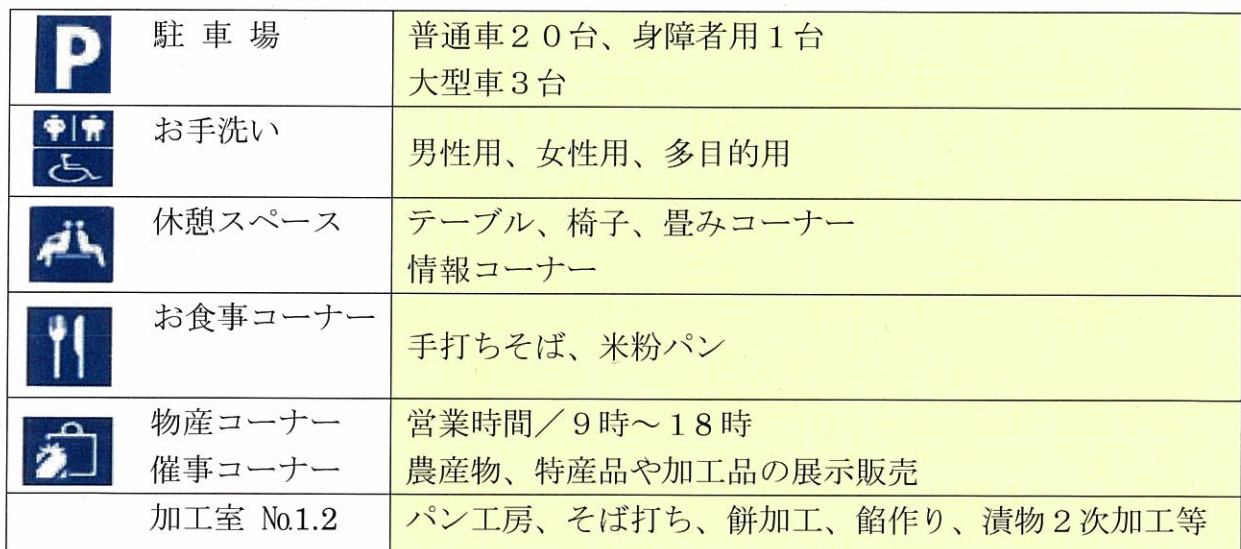 P
駐 車 場
普通車２０台、身障者用１台
大型車３台
お手洗い
男性用、女性用、多目的用
休憩スペース
テーブル、椅子、畳みコーナー
情報コーナー
お食事コーナー
手打ちそば、米粉パン
物産コーナー
催事コーナー
営業時間／９時～１８時
農産物、特産品や加工品の展示販売
加工室 №1.2
パン工房、そば打ち、餅加工、餡作り、漬物２次加工等